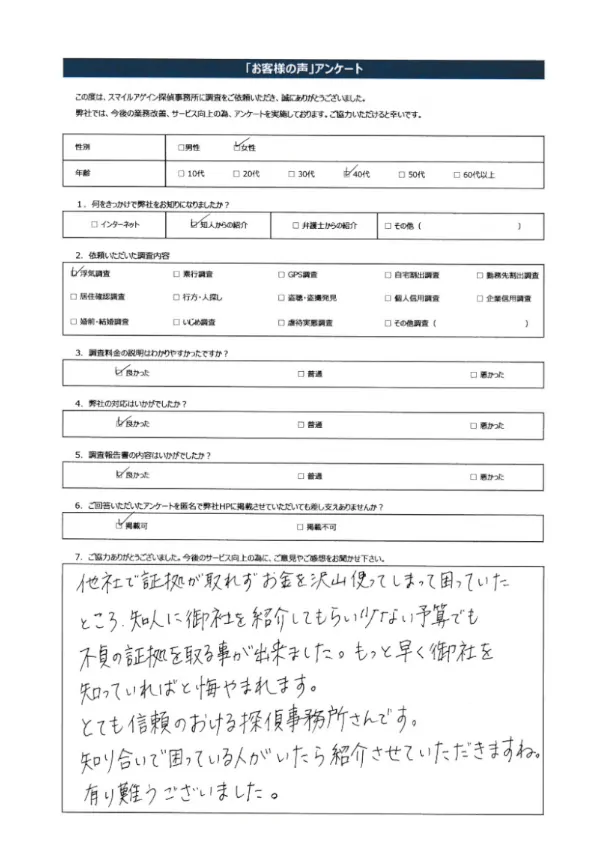 「お客様の声」アンケート
この度は、スマイルアゲイン探偵事務所に調査をご依頼いただき、誠にありがとうございました。
弊社では、今後の業務改善、サービス向上の為、アンケートを実施しております。ご協力いただけると幸いです。
性別 □男性 ☑女性
年齢 □10代 □20代 □30代 ☑40代 □50代 □60代以上
1．何をきっかけで弊社をお知りになりましたか？
□インターネット ☑知人からの紹介 □弁護士からの紹介 □その他（ ）
2．依頼いただいた調査内容
☑浮気調査 □素行調査 □GPS調査 □自宅割出調査 □勤務先割出調査
□居住確認調査 □行方・人探し □盗聴・盗撮発見 □個人信用調査 □企業信用調査
□婚前・結婚調査 □いじめ調査 □虐待実態調査 □その他調査（ ）
3．調査料金の説明はわかりやすかったですか？
☑良かった □普通 □悪かった
4．弊社の対応はいかがでしたか？
☑良かった □普通 □悪かった
5．調査報告書の内容はいかがでしたか？
☑良かった □普通 □悪かった
6．ご回答いただいたアンケートを匿名で弊社HPに掲載させていただいても差し支えありませんか？
☑掲載可 □掲載不可
7．ご協力ありがとうございました。今後のサービス向上の為に、ご意見やご感想をお聞かせ下さい。
他社で証拠が取れずお金を沢山使ってしまって困っていた
ところ、知人に御社を紹介してもらい少ない予算でも
不貞の証拠を取る事が出来ました。もっと早く御社を
知っていればと悔やまれます。
とても信頼のおける探偵事務所さんです。
知り合いで困っている人がいたら紹介させていただきますね。
有り難うございました。